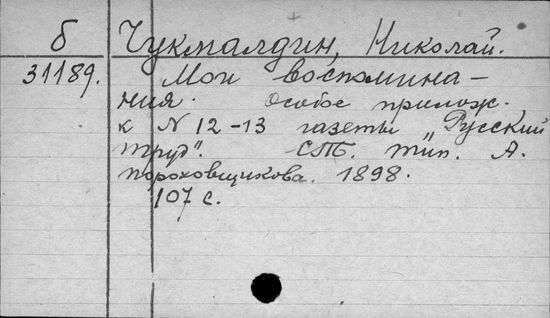 б Чукмалдин, Николай.
31189. Мои воспомина-
ния. Особое прилож.
к N 12-13 газеты „Русский
труд". СПб. тип. А.
Пороховщикова. 1898.
107 с.